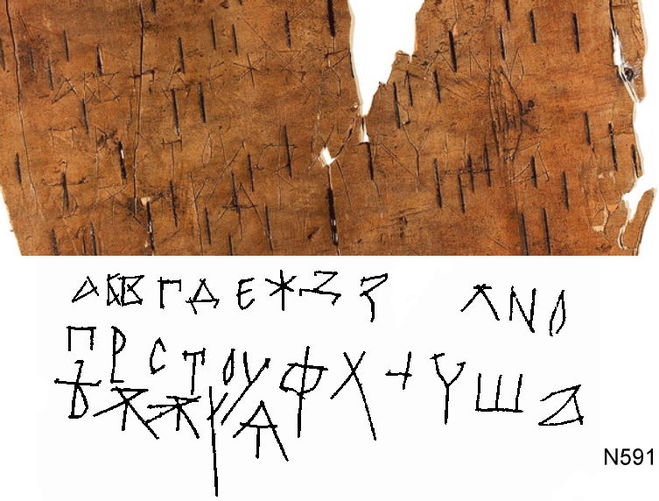 АБВГДЕЖЅЗ ЛNО
ПРСТОУФХ+ЧШ
ѢѪѬѦ
N591